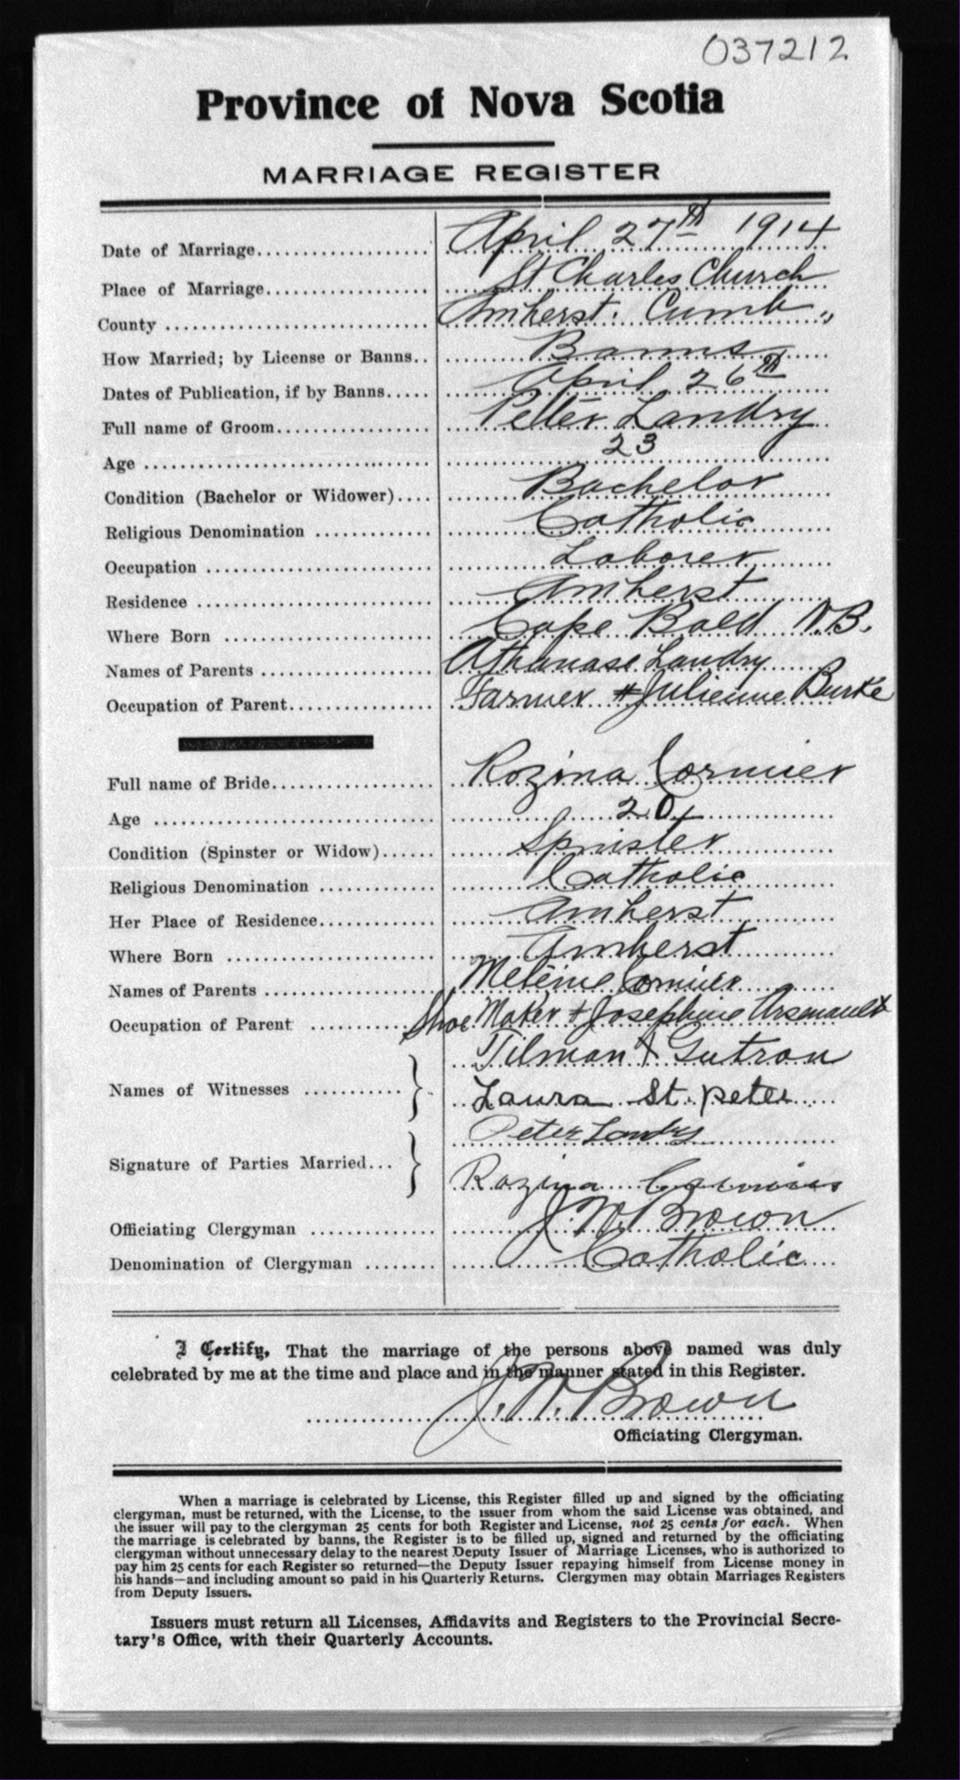 037212
Province of Nova Scotia
MARRIAGE REGISTER
Date of Marriage.................... April 27th 1914
Place of Marriage................... St Charles Church
County ............................. Amherst. Cumb "
How Married; by License or Banns.. Banns
Dates of Publication, if by Banns..... April 26th
Full name of Groom.................. Peter Landry
Age ................................ 23
Condition (Bachelor or Widower).... Bachelor
Religious Denomination ............. Catholic
Occupation ......................... Laborer
Residence .......................... Amherst
Where Born ......................... Cape Bald N.B.
Names of Parents ................... Athanase Landry
Occupation of Parent................ Farmer + Julienne Burke
Full name of Bride.................. Rozina Cormier
Age ................................ 20
Condition (Spinster or Widow)...... Spinster
Religious Denomination ............. Catholic
Her Place of Residence.............. Amherst
Where Born ......................... Amherst
Names of Parents ................... Cormier
Occupation of Parent ............... Shoe Maker + Josephine Arsenault
Tilman Gutrau
Names of Witnesses ............
Laura St. peter
Peter Landry
Signature of Parties Married...
Rozina Cormier
Officiating Clergyman .............. J. W. Brown
Denomination of Clergyman ........ Catholic
I Certify, That the marriage of the persons above named was duly
celebrated by me at the time and place and in the manner stated in this Register.
J. W. Brown
Officiating Clergyman.
When a marriage is celebrated by License, this Register filled up and signed by the officiating
clergyman, must be returned, with the License, to the issuer from whom the said License was obtained, and
the issuer will pay to the clergyman 25 cents for both Register and License, not 25 cents for each. When
the marriage is celebrated by banns, the Register is to be filled up, signed and returned by the officiating
clergyman without unnecessary delay to the nearest Deputy Issuer of Marriage Licenses, who is authorized to
pay him 25 cents for each Register so returned—the Deputy Issuer repaying himself from License money in
his hands—and including amount so paid in his Quarterly Returns. Clergymen may obtain Marriages Registers
from Deputy Issuers.
Issuers must return all Licenses, Affidavits and Registers to the Provincial Secre-
tary's Office, with their Quarterly Accounts.